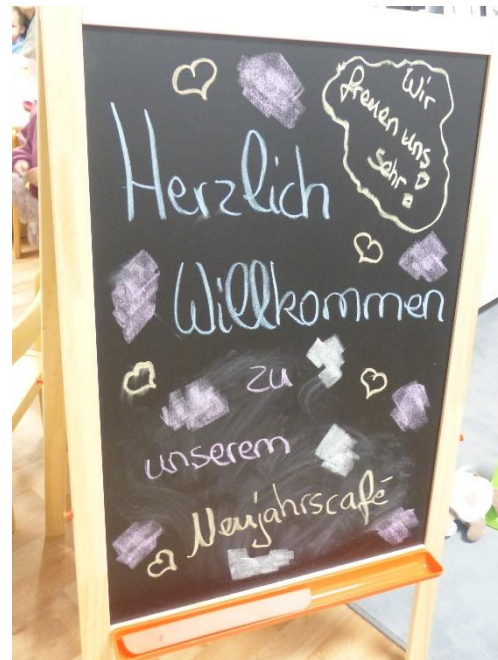 Wir
freuen uns
sehr!
Herzlich
Willkommen
zu
unserem
Neujahrscafé